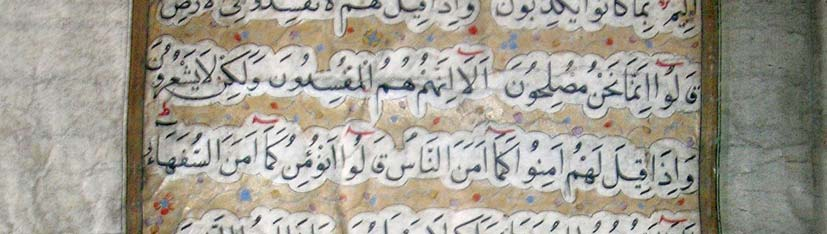 لِيمٌ بِمَا كَانُوا يَكْذِبُونَ وَإِذَا قِيلَ لَهُمْ لَا تُفْسِدُوا فِي الْأَرْضِ
قَالُوا إِنَّمَا نَحْنُ مُصْلِحُونَ أَلَا إِنَّهُمْ هُمُ الْمُفْسِدُونَ وَلَكِنْ لَا يَشْعُرُونَ
وَإِذَا قِيلَ لَهُمْ آمِنُوا كَمَا آمَنَ النَّاسُ قَالُوا أَنُؤْمِنُ كَمَا آمَنَ السُّفَهَاءُ